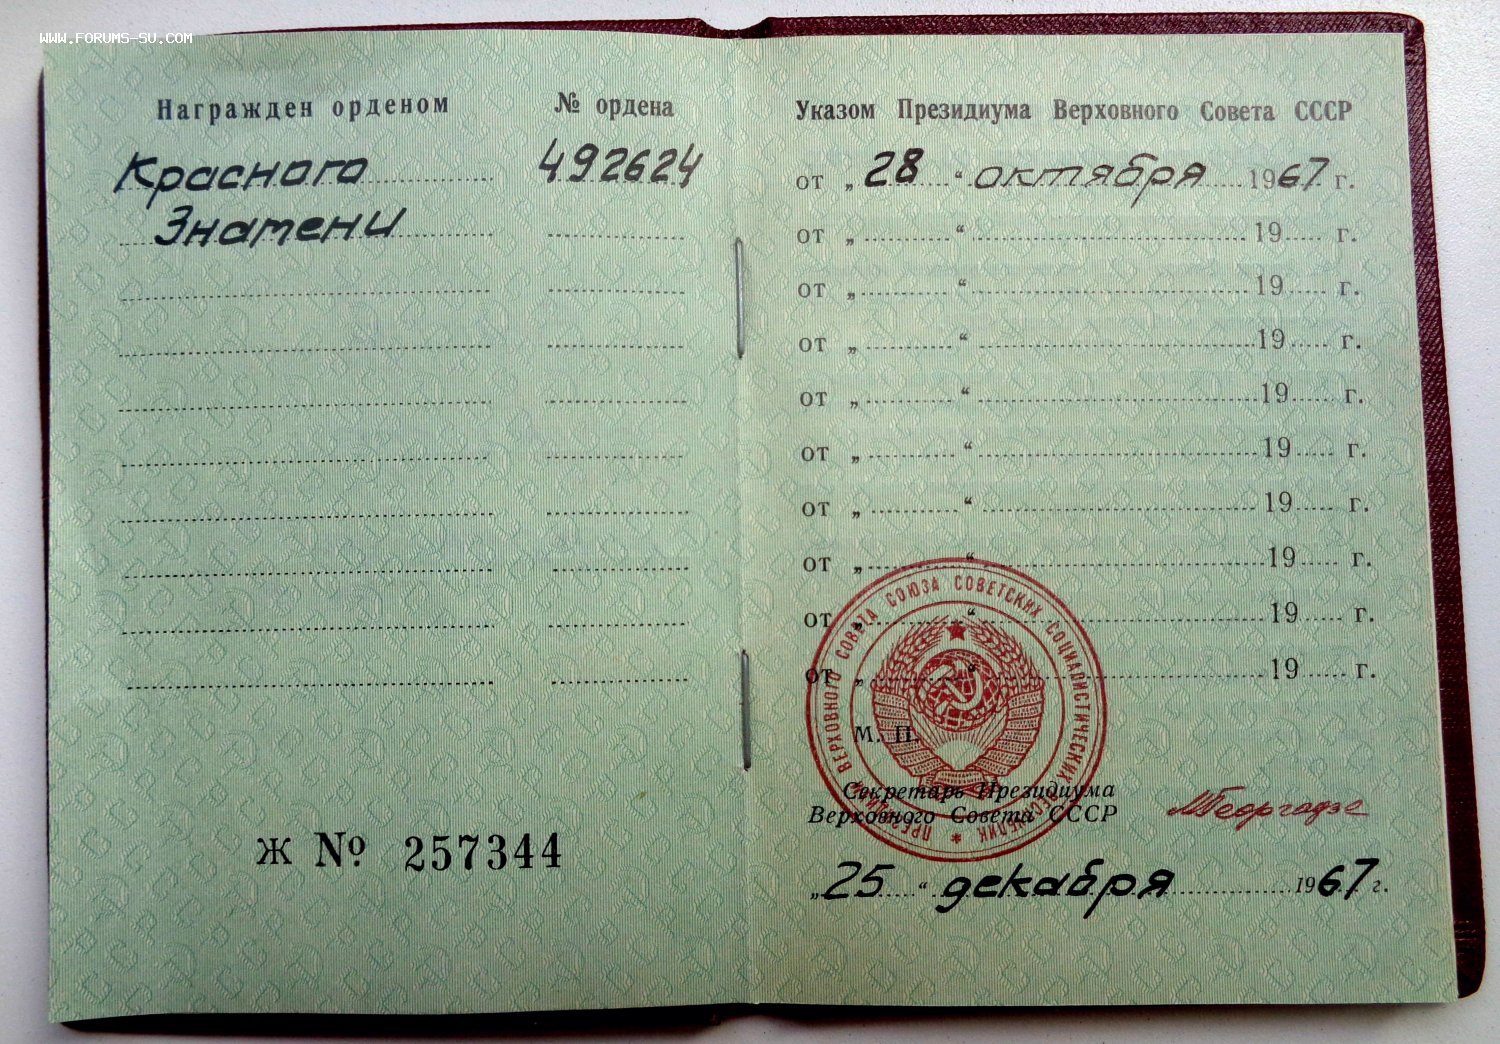 WWW.FORUMS-SU.COM
Награжден орденом
№ ордена
Красного
492624
Знамени
Ж № 257344
Указом Президиума Верховного Совета СССР
от „ 28 “ октября 1967 г.
от „ “ 19 г.
от „ “ 19 г.
от „ “ 19 г.
от „ “ 19 г.
от „ “ 19 г.
от „ “ 19 г.
от „ “ 19 г.
от „ “ 19 г.
от „ “ 19 г.
ПРЕЗИДИУМ ВЕРХОВНОГО СОВЕТА СОЮЗА СОВЕТСКИХ СОЦИАЛИСТИЧЕСКИХ РЕСПУБЛИК
М. П.
Секретарь Президиума
Верховного Совета СССР
МГеоргадзе
„ 25 “ декабря 1967 г.